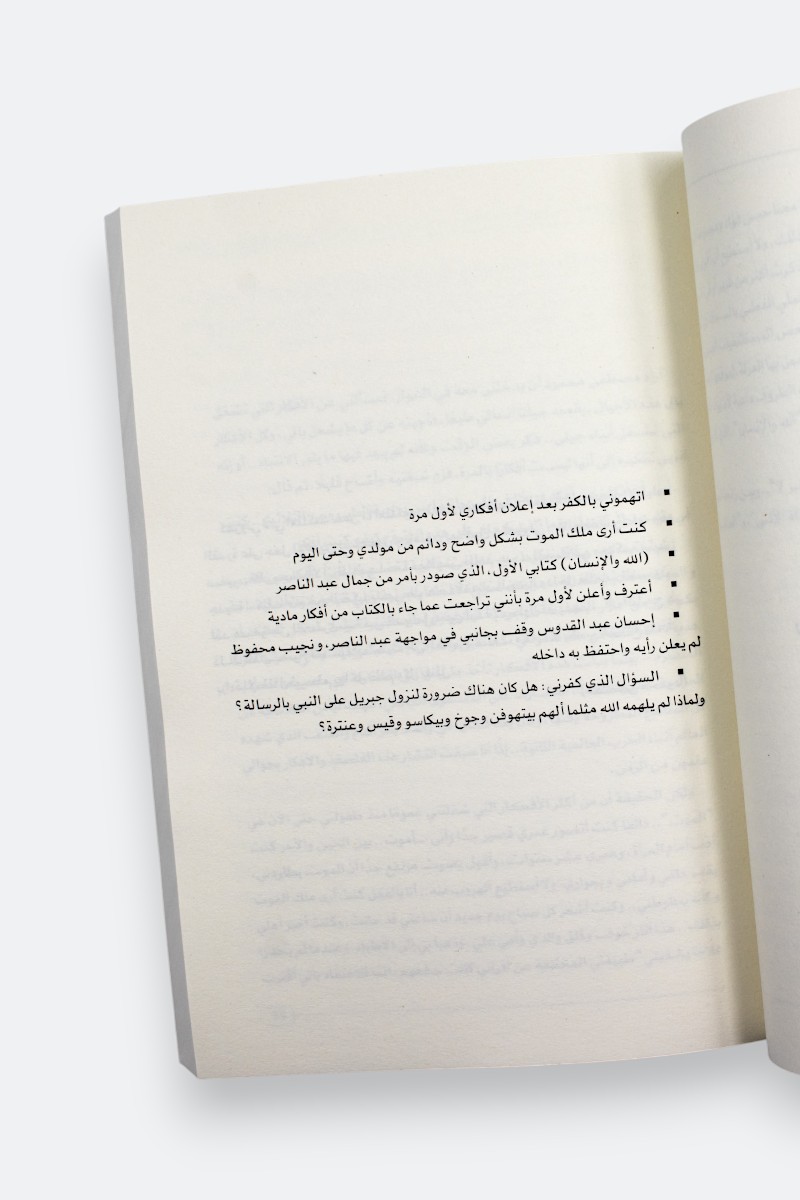 ▪ اتهموني بالكفر بعد إعلان أفكاري لأول مرة
▪ كنت أرى ملك الموت بشكل واضح ودائم من مولدي وحتى اليوم
▪ (الله والإنسان) كتابي الأول، الذي صودر بأمر من جمال عبد الناصر
▪ أعترف وأعلن لأول مرة بأنني تراجعت عما جاء بالكتاب من أفكار مادية
▪ إحسان عبد القدوس وقف بجانبي في مواجهة عبد الناصر، ونجيب محفوظ
لم يعلن رأيه واحتفظ به داخله
▪ السؤال الذي كفرني: هل كان هناك ضرورة لنزول جبريل على النبي بالرسالة؟
ولماذا لم يلهمه الله مثلما ألهم بيتهوفن وجوخ وبيكاسو وقيس وعنترة؟